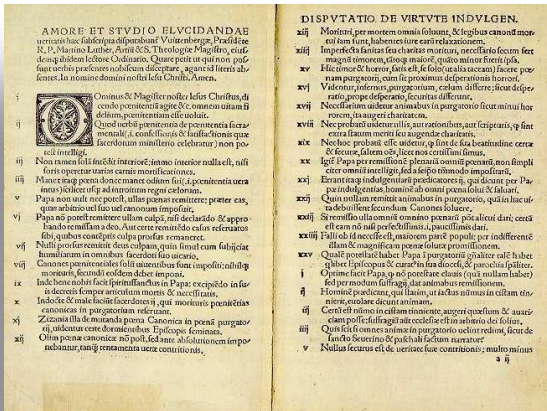 AMORE ET STVDIO ELVCIDANDAE
ueritatis hæc subscripta disputabunť Vuittenbergæ, Præsidẽte
R. P. Martino Luther, Artiũ & S. Theologiæ Magistro, eius-
demq̃ ibidem lectore Ordinario. Quare petit ut qui non pos-
sunt uerbis præsentes nobiscum disceptare, agant id literis ab-
sentes. In nomine domini nostri Iesu Christi. Amen.
i Ominus & Magister noster Iesus Christus, di-
cendo pœnitentiã agite &c. omnem uitam fi
delium, pœnitentiam esse uoluit.
ij Quod uerbũ pœnitentia de pœnitentia sacra
mentali (.i. confessionis & satisfactionis quæ
sacerdotum ministerio celebratur) non po-
test intelligi.
iij Non tamen solã intẽdit interiorẽ: immo interior nulla est, nisi
foris operetur uarias carnis mortificationes.
iiij Manet itaq̃ pœna donec manet odium sui (.i. pœnitentia uera
intus) scilicet usq̃ ad introitum regni cælorum.
v Papa non uult nec potest, ullas pœnas remittere: præter eas,
quas arbitrio uel suo uel canonum imposuit.
vj Papa nõ potest remittere ullam culpã, nisi declarãdo & appro-
bando remissam a deo, Aut certe remittẽdo casus reseruatos
sibi, quibus contẽptis culpa prorsus remaneret.
vij Nulli prorsus remittit deus culpam, quin simul eum subijciat
humiliatum in omnibus sacerdoti suo uicario.
viij Canones pœnitentiales solũ uiuentibus sunt impositi: nihilq̃
morituris, secundũ eosdem debet imponi.
ix Inde bene nobis facit spiritussanctus in Papa: excipiẽdo in su-
is decretis semper articulum mortis & necessitatis.
x Indocte & male faciũt sacerdotes ij, qui morituris pœnitẽtias
canonicas in purgatorium reseruant.
xj Zizania illa de mutanda pœna Canonica in pœnã purgato-
rij, uidentur certe dormientibus Episcopis seminata.
xij Olim pœnæ canonicæ nõ post, sed ante absolutionem impo
nebantur, tanq̃ tentamenta ueræ contritionis.
DISPVTATIO DE VIRTVTE INDVLGEN.
xiij Morituri, per mortem omnia soluunt, & legibus canonũ mor-
tui iam sunt, habentes iure earũ relaxationem.
xiiij Imperfecta sanitas seu charitas morituri, necessario secum fert
magnũ timorem, tãtoq̃ maiorẽ, quãto minor fuerit ipsa.
xv Hic timor & horror, satis est, se solo (ut alia taceam) facere pœ-
nam purgatorij, cum sit proximus desperationis horrori.
xvj Videntur, infernus, purgatorium, cælum differre: sicut despe-
ratio, prope desperatio, securitas differunt.
xvij Necessarium uidetur animabus in purgatorio sicut minui hor
rorem, ita augeri charitatem.
xviij Nec probatũ uidetur ullis, aut rationibus, aut scripturis, q̃ sint
extra statum meriti seu augendæ charitatis.
xix Nec hoc probatũ esse uidetur, q̃ sint de sua beatitudine certæ
& securæ, saltem oẽs, licet nos certissimi simus.
xx Igiť Papa per remissionẽ plenariã omniũ pœnarũ, non simpli
citer omniũ intelligit, sed a seipso tãtmodo impositarũ.
xxj Errant itaq̃ indulgentiarũ prædicatores ij, qui dicunt per Pa-
pæ indulgentias, hominẽ ab omni pœna solui & saluari.
xxij Quin nullam remittit animabus in purgatorio, quã in hac ui-
ta debuissent secundum Canones soluere.
xxiij Si remissio ulla omniũ omnino pœnarũ põt alicui dari; certũ
est eam nõ nisi perfectissimis, .i. paucissimis dari.
xxiiij Falli ob id necesse est, maiorem partẽ populi: per indifferentẽ
illam & magnificam pœnæ solutæ promissionem.
xxv Qualẽ potestatẽ habet Papa ĩ purgatoriũ gñaliter talẽ habet
q̃libet Episcopus & curat9 in sua diocesi, & parochia spãliter.
i Optime facit Papa, q̃ nõ potestate clauis (quã nullam habet)
sed per modum suffragij, dat animabus remissionem.
ij Hominẽ prædicant, qui statim, ut iactus nũmus in cistam tin-
nierit, euolare dicunt animam.
iij Certũ est nũmo in cistam tinniente, augeri quæstum & auari-
ciam posse; suffragiũ aũt ecclesiæ est in arbitrio dei solius.
iiij Quis scit si omnes animæ in purgatorio uelint redimi, sicut de
sancto Seuerino & paschali factum narratur
v Nullus securus est de ueritate suæ contritionis; multo minus
a ij